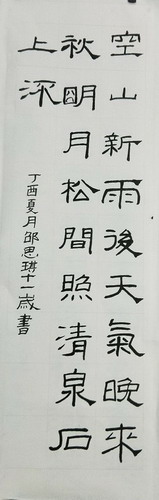 空山新雨後天氣晚来
秋明月松間照清泉石
上深
丁酉夏月邵思琪十一歲書